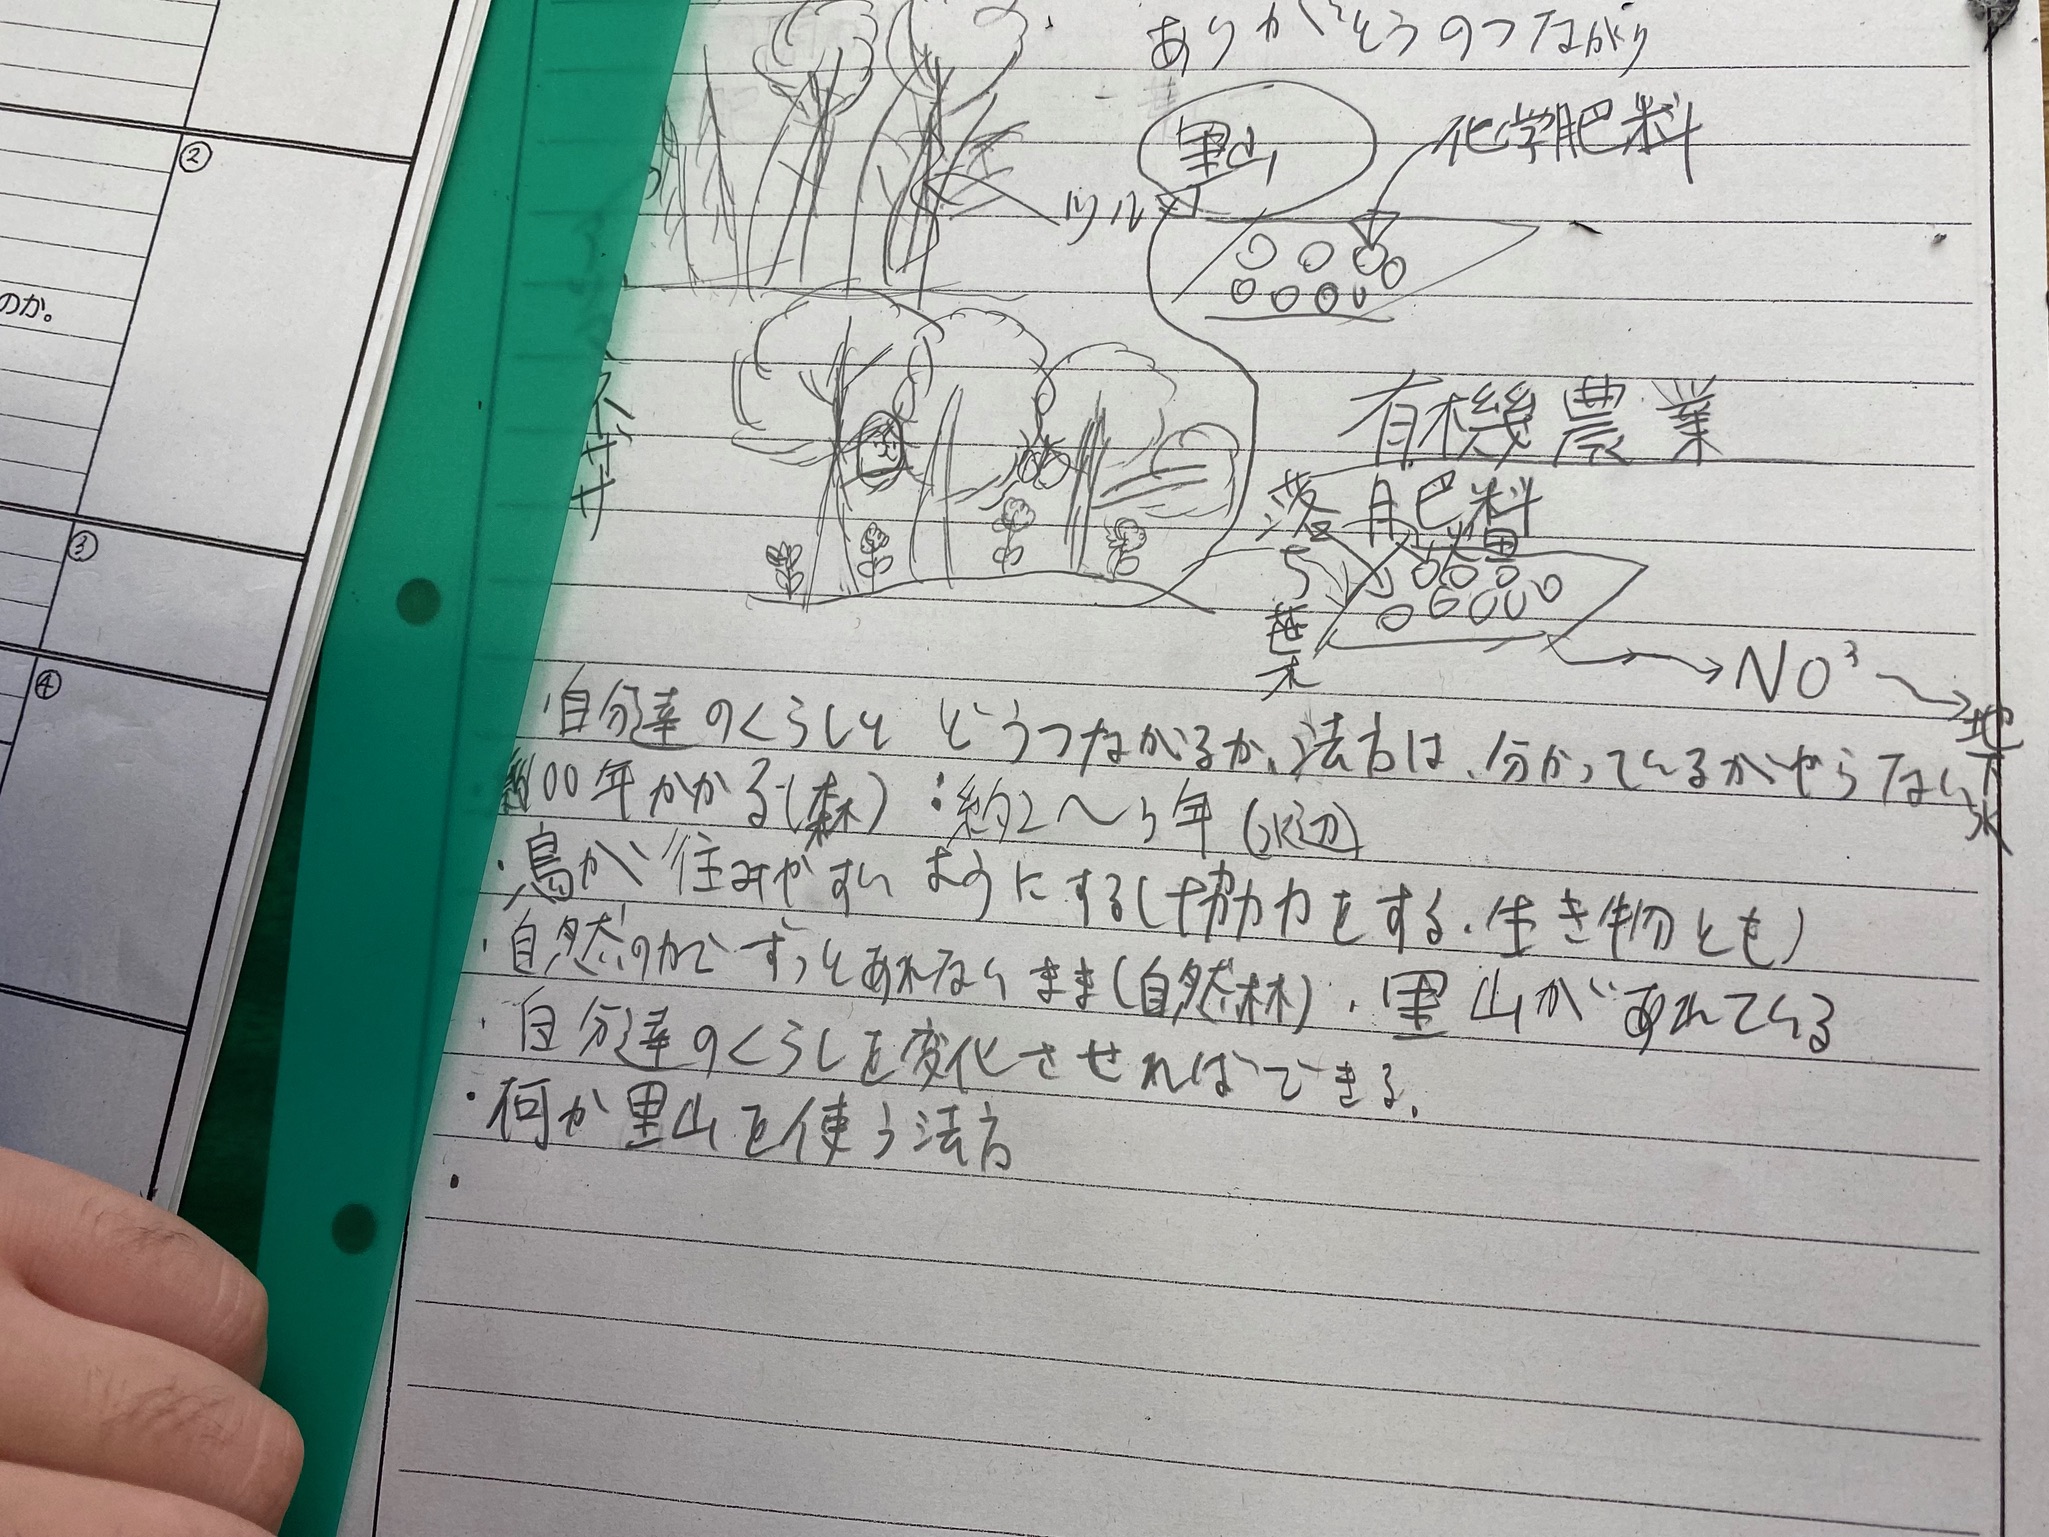 ありがとうのつながり
里山
化学肥料
ツル
ネザサ
有機農業
肥料
落ち葉
NO³
地下水
②
のか。
③
④
・自分達のくらしと どうつながるか、法方は、分かっているがやらない
約100年かかる(森) :約2〜5年(水辺)
・鳥が住みやすいようにする(協力をする.生き物とも)
・自然の力で ずっとあれないまま(自然林).里山があれている
・自分達のくらしを変化させればできる.
・何か里山を使う法方
・